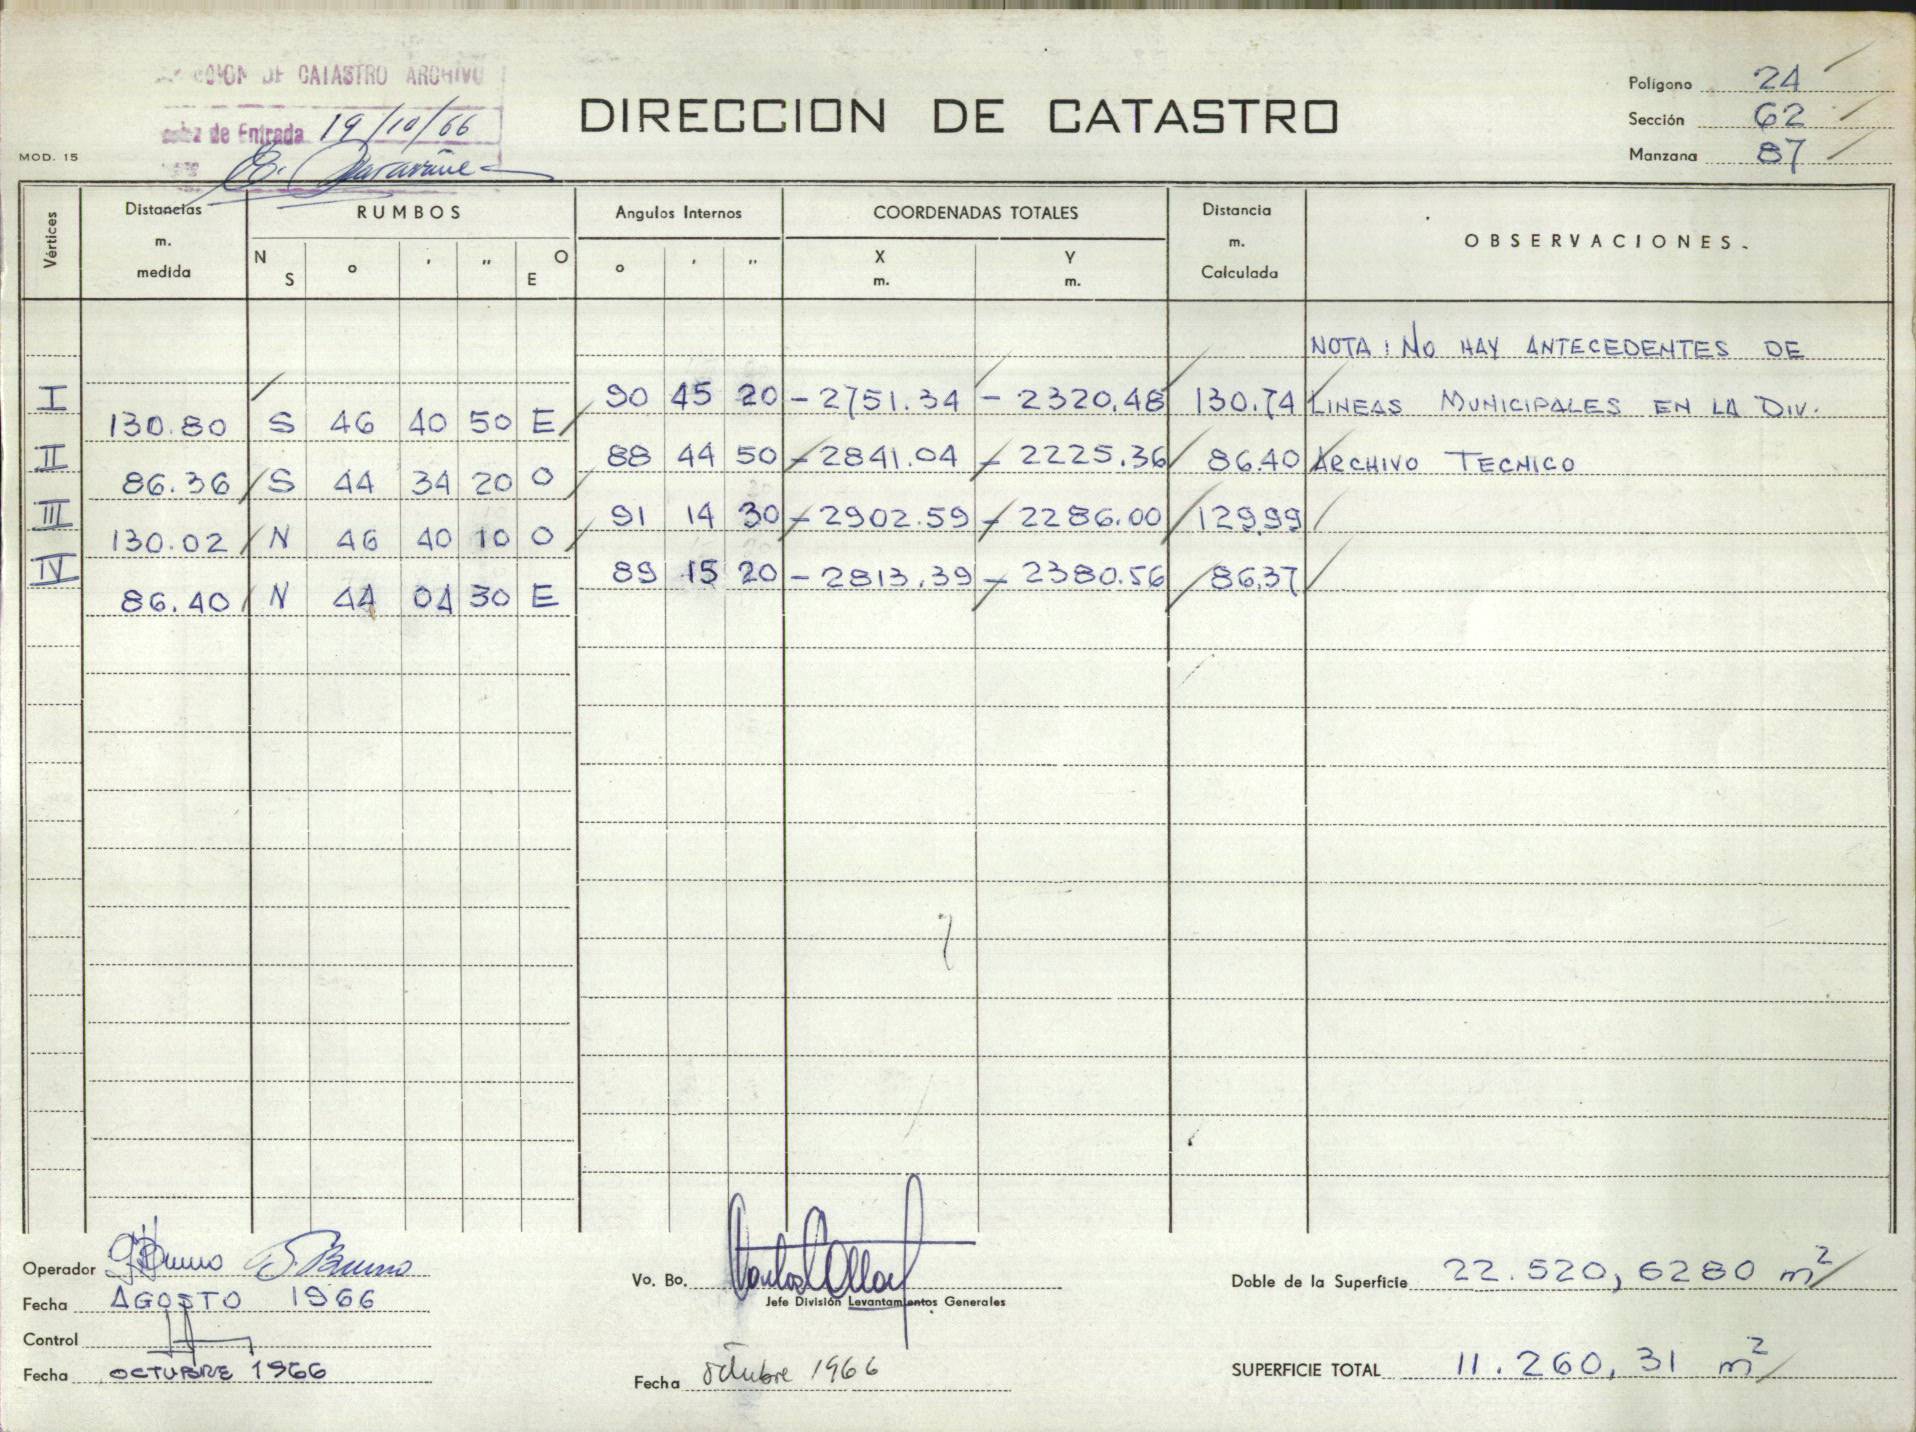 DE CATASTRO ARCHIVO
de Entrada 19/10/66
DIRECCION DE CATASTRO
MOD. 15
Polígono 24
Sección 62
Manzana 87
Vértices
Distancias m. medida
RUMBOS
N S o ' " O E
Angulos Internos
o ' "
COORDENADAS TOTALES
X m. Y m.
Distancia m. Calculada
OBSERVACIONES.
NOTA: NO HAY ANTECEDENTES DE
I 90 45 20 -2751.34 -2320,48 130.74 LINEAS MUNICIPALES EN LA DIV.
130.80 S 46 40 50 E
II 88 44 50 -2841.04 -2225.36 86.40 ARCHIVO TECNICO
86.36 S 44 34 20 O
III 91 14 30 -2902.59 -2286.00 129,99
130.02 N 46 40 10 O
IV 89 15 20 -2813,39 -2380.56 86,37
86.40 N 44 04 30 E
Operador Bruno Bruno
Fecha AGOSTO 1966
Control
Fecha OCTUBRE 1966
Vo. Bo.
Jefe División Levantamientos Generales
Fecha octubre 1966
Doble de la Superficie 22.520,6280 m2
SUPERFICIE TOTAL 11.260,31 m2